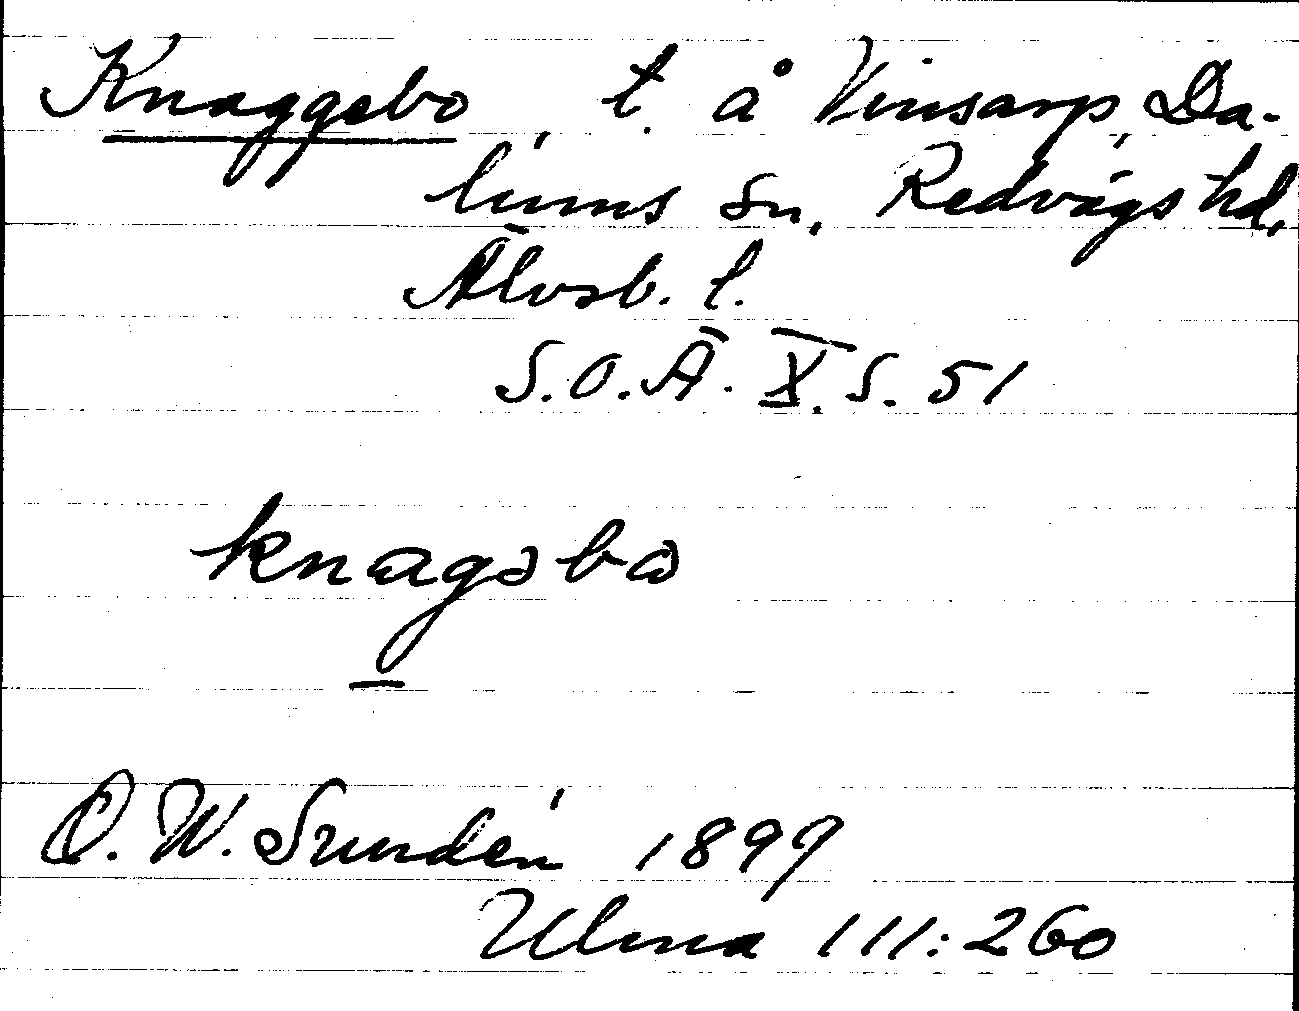 Knaggebo, t. å Vinsarp, Da-
lums sn, Redvägs hd,
Älvsb. l.
S.O.Ä. X. S. 51
knagəbɷ
D. W. Sundén 1897
Ulma 111:260